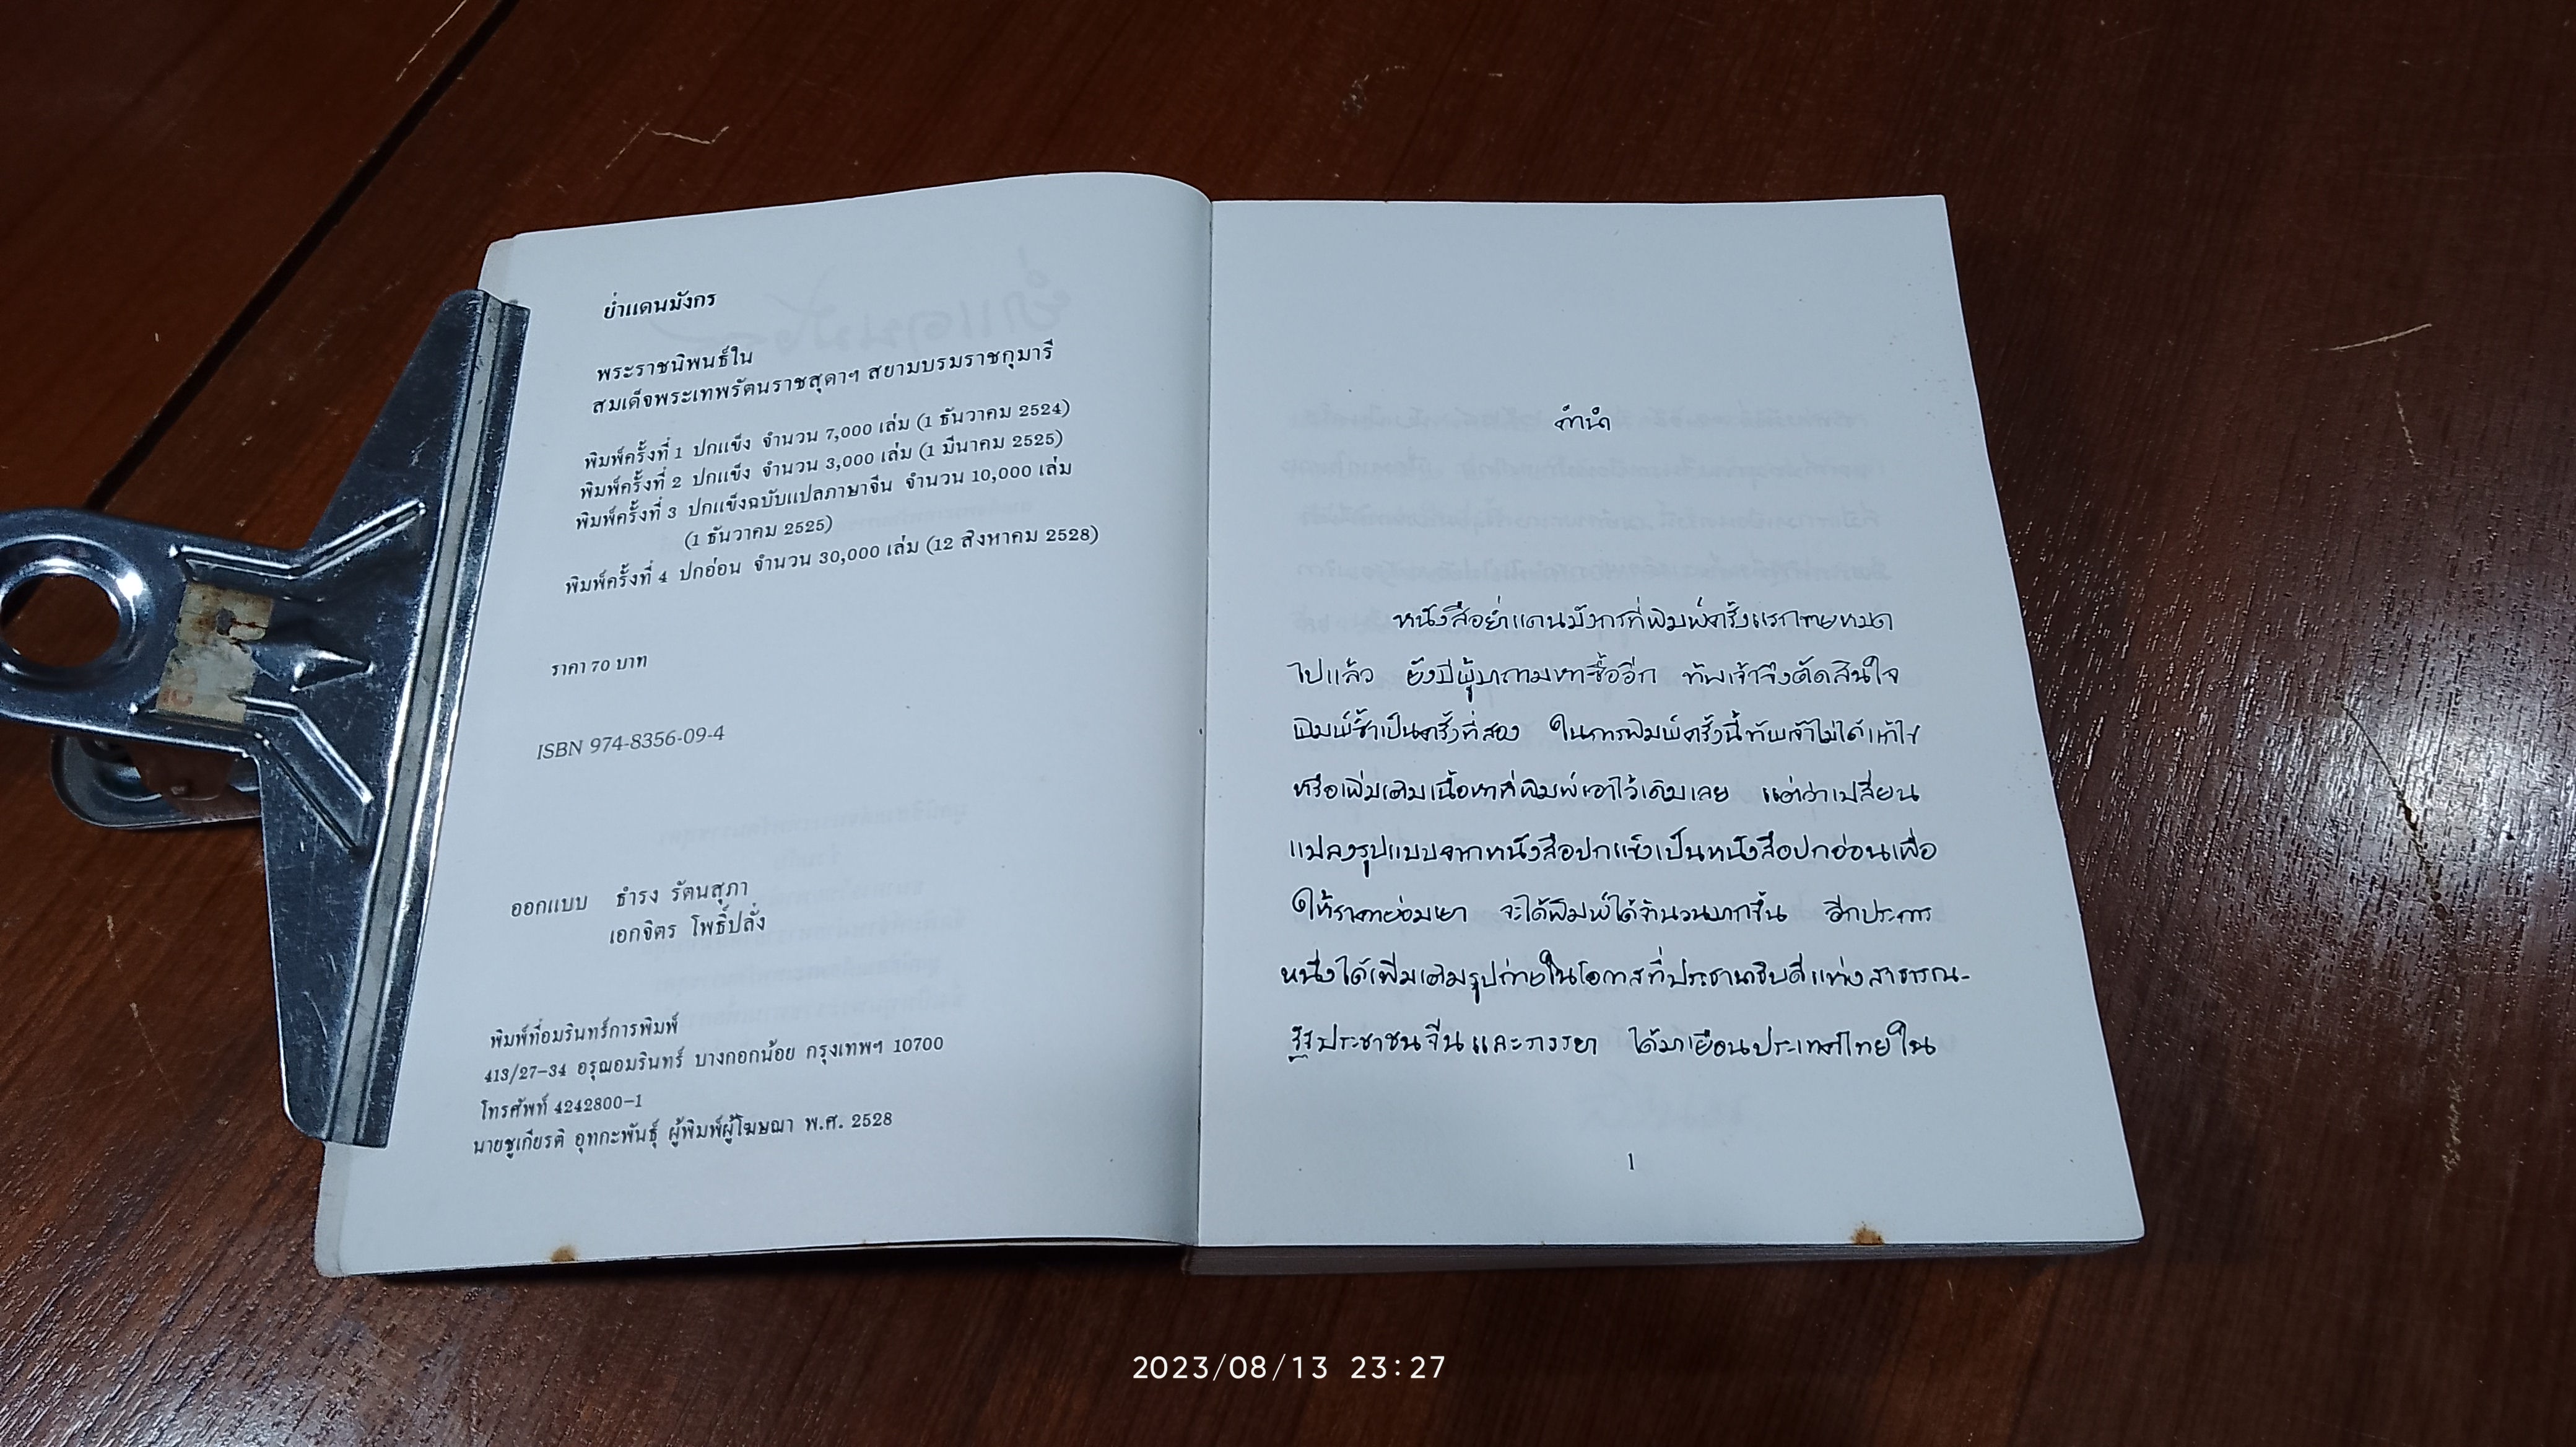 ย่ำแดนมังกร
พระราชนิพนธ์ใน
สมเด็จพระเทพรัตนราชสุดาฯ สยามบรมราชกุมารี
พิมพ์ครั้งที่ 1 ปกแข็ง จำนวน 7,000 เล่ม (1 ธันวาคม 2524)
พิมพ์ครั้งที่ 2 ปกแข็ง จำนวน 3,000 เล่ม (1 มีนาคม 2525)
พิมพ์ครั้งที่ 3 ปกแข็งฉบับแปลภาษาจีน จำนวน 10,000 เล่ม
(1 ธันวาคม 2525)
พิมพ์ครั้งที่ 4 ปกอ่อน จำนวน 30,000 เล่ม (12 สิงหาคม 2528)
ราคา 70 บาท
ISBN 974-8356-09-4
ออกแบบ ธำรง รัตนสุภา
เอกจิตร โพธิ์ปลั่ง
พิมพ์ที่อมรินทร์การพิมพ์
413/27-34 อรุณอมรินทร์ บางกอกน้อย กรุงเทพฯ 10700
โทรศัพท์ 4242800-1
นายชูเกียรติ อุทกะพันธุ์ ผู้พิมพ์ผู้โฆษณา พ.ศ. 2528
คำนำ
หนังสือย่ำแดนมังกรที่พิมพ์ครั้งแรกขายหมด
ไปแล้ว ยังมีผู้มาถามหาซื้ออีก ข้าพเจ้าจึงตัดสินใจ
พิมพ์ซ้ำเป็นครั้งที่สอง ในการพิมพ์ครั้งนี้ข้าพเจ้าไม่ได้แก้ไข
หรือเพิ่มเติมเนื้อหาที่พิมพ์เอาไว้เดิมเลย แต่ว่าเปลี่ยน
แปลงรูปแบบจากหนังสือปกแข็งเป็นหนังสือปกอ่อนเพื่อ
ให้ราคาย่อมเยา จะได้พิมพ์ได้จำนวนมากขึ้น อีกประการ
หนึ่งได้เพิ่มเติมรูปถ่ายในโอกาสที่ประธานาธิบดีแห่งสาธารณ-
รัฐประชาชนจีนและภรรยา ได้มาเยือนประเทศไทยใน
1
2023/08/13 23:27